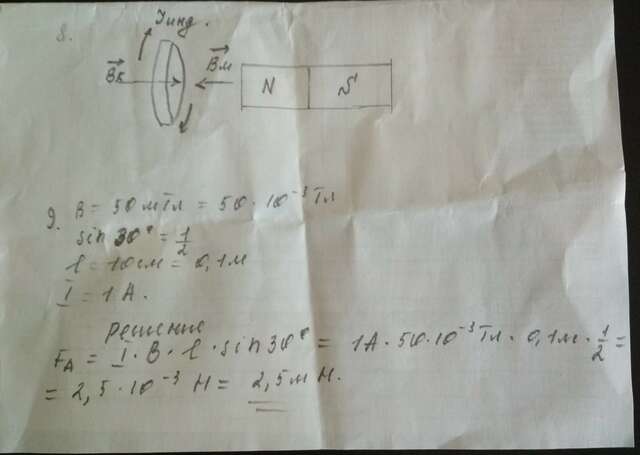 8.
Iинд.
Bк
Bм
N S
9. B = 50 мТл = 50 · 10⁻³ Тл
sin 30° = 1/2
l = 10 см = 0,1 м
I = 1 А.
Решение
Fₐ = I · B · l · sin 30° = 1А · 50 · 10⁻³ Тл · 0,1 м · 1/2 =
= 2,5 · 10⁻³ Н = 2,5 мН.